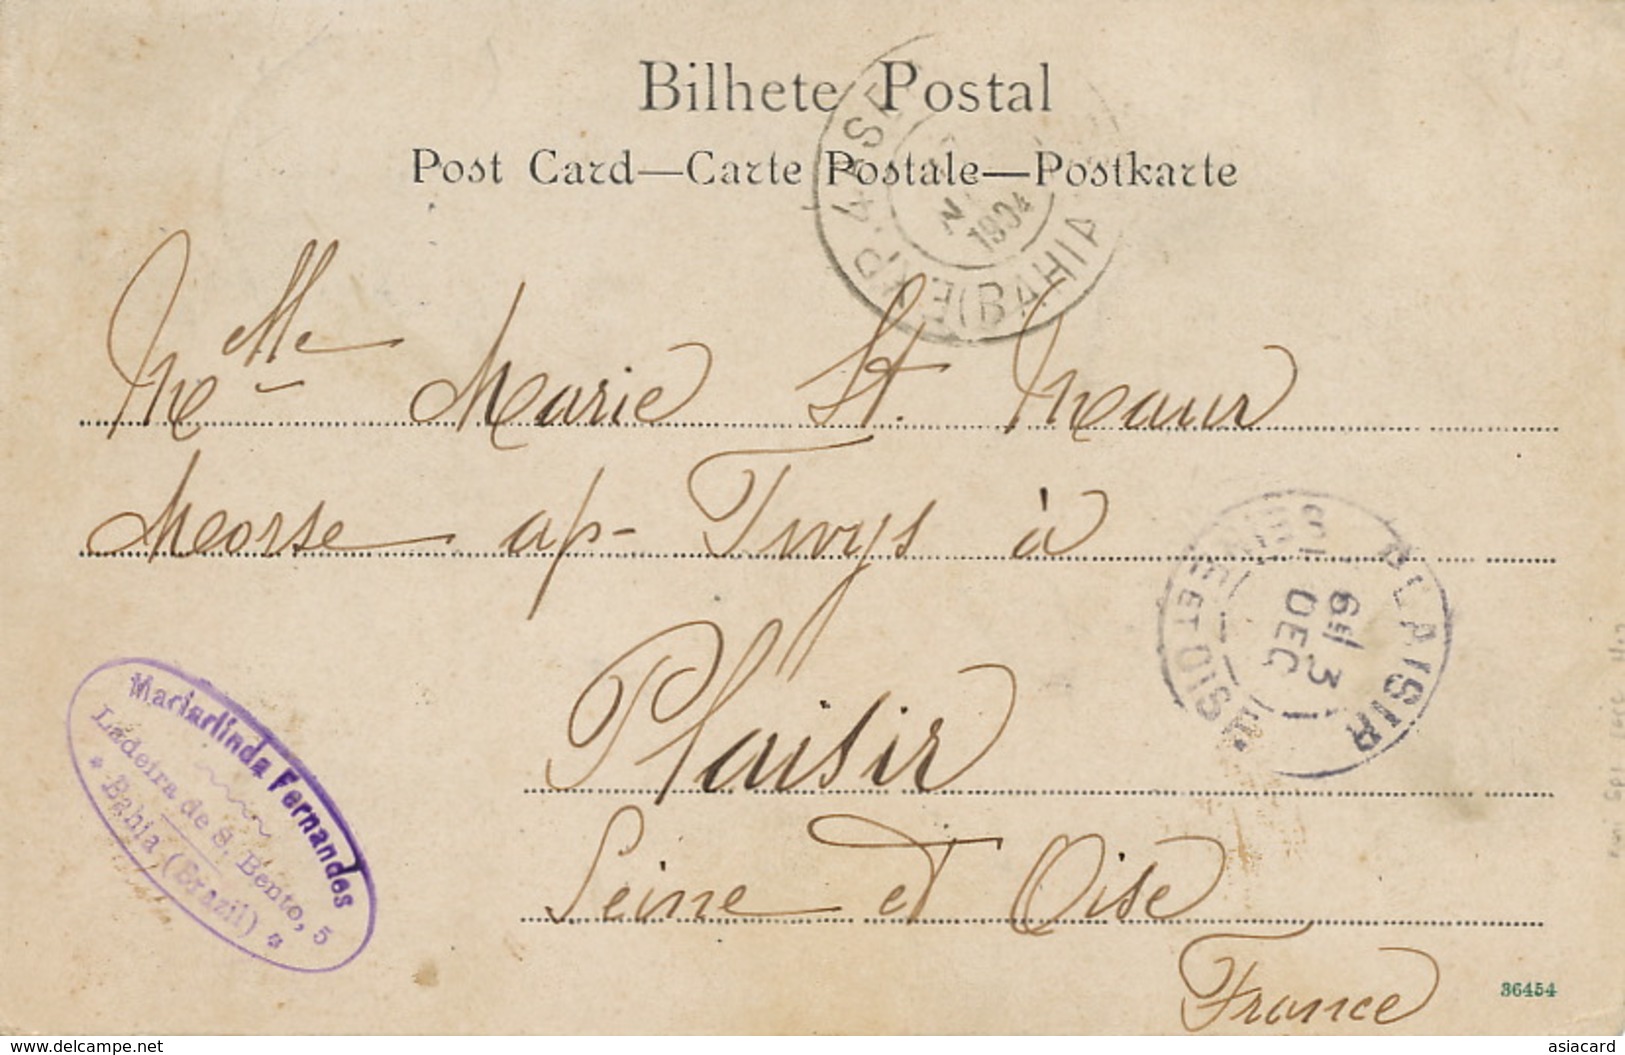 Bilhete Postal
Post Card—Carte Postale—Postkarte
EXP. 4ª SE
1904
(BAHIA
Mlle Marie St. Maur
Morse ap- Twys à
Plaisir
Seine et Oise
France
PLAISIR
SEINE ET OISE
DEC
Mariarlinda Fernandes
Ladeira de S. Bento, 5
* Bahia (Brazil) *
36454
www.delcampe.net
asiacard